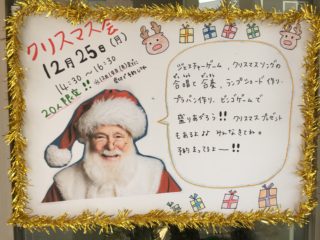 クリスマス会
12月25日(月)
14:30〜16:30
20人限定!!
ジェスチャーゲーム、クリスマスソングの
合唱と合奏、ランプシェード作り、
プラバン作り、ビンゴゲームで
盛りあがろう!! クリスマスプレゼント
もあるよ♪♪ みんなきてね。
予約まってるよー!!